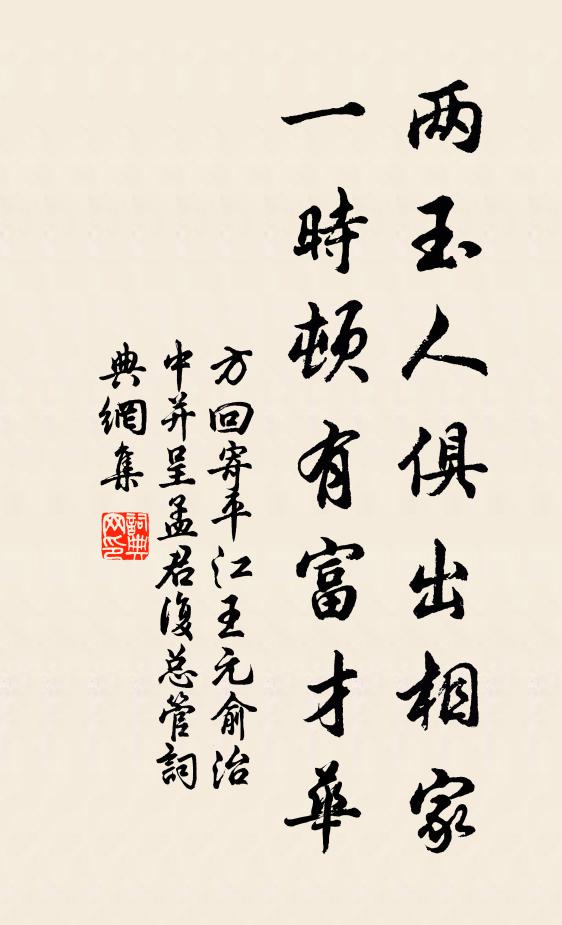 两玉人俱出相家
一時頓有富才華
方回寄平江王元俞治
中并呈孟君復总管詞
典網集
詞典網印